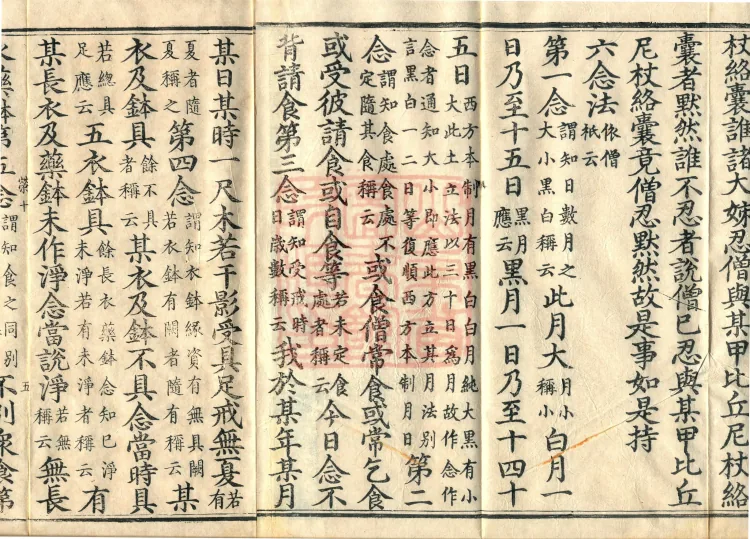 杖絡囊誰諸大姊忍僧與某甲比丘尼杖絡
囊者默然誰不忍者說僧已忍與某甲比丘
尼杖絡囊竟僧忍默然故是事如是持
六念法依僧祇云
第一念謂知日數月之大小黑白稱云此月大月小稱小白月一
日乃至十五日黑月應云黑月一日乃至十四十
五日西方本制月有黑白白月純大黑有小大此土立法以三十日爲月故作念作
念者通知大小即應此方立其月法別言黑白一二日等復順西方本制月日第二
念謂知食處食處不定隨其食稱云或食僧常食或常乞食
或受彼請食或自食等若未定食處者稱云今日念不
背請食第三念謂知受戒時日歲數稱云我於某年某月
某日某時一尺木若干影受具足戒無夏若有
夏者隨夏稱之第四念謂知衣鉢緣資有無具闕若衣鉢有闕者隨有稱云某
衣及鉢具餘不具者稱云某衣及鉢不具念當時具
若總具足應云五衣鉢具餘長衣藥鉢念知已淨未淨若有未淨者稱云有
某長衣及藥鉢未作淨念當說淨若無稱云無長
衣藥鉢第五念謂知食之同別不別眾食第